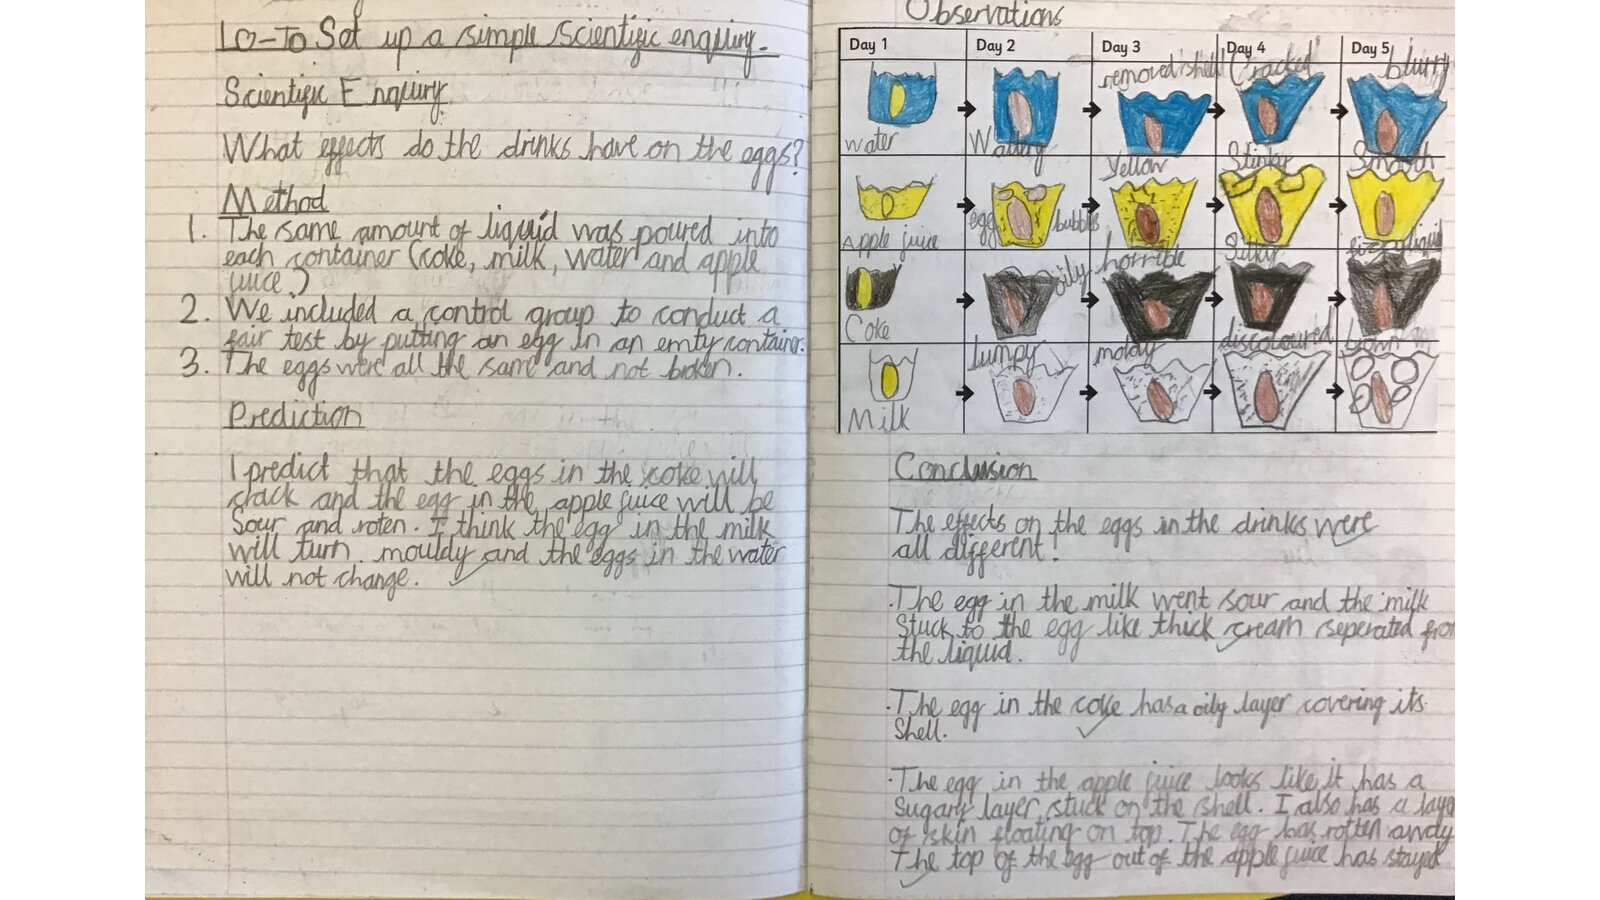 LO-To Set up a simple scientific enquiry.
Scientific Enquiry
What effects do the drinks have on the eggs?
Method
1. The same amount of liquid was poured into
each container (coke, milk, water and apple
juice)
2. We included a control group to conduct a
fair test by putting an egg in an emty container.
3. The eggs were all the same and not broken.
Prediction
I predict that the eggs in the coke will
crack and the egg in the apple juice will be
Sour and roten. I think the egg in the milk
will turn mouldy and the eggs in the water
will not change.
Observations
Day 1 Day 2 Day 3 Day 4 Day 5
removed shell Cracked blurry
water Watery
Yellow Stinky Smooth
egg bubbles
Apple juice
oily horrible Silky fizzy liquid
Coke
lumpy moldy discoloured brown
Milk
Conclusion
The effects on the eggs in the drinks were
all different!
. The egg in the milk went sour and the milk
Stuck to the egg like thick cream seperated from
the liquid.
. The egg in the coke has a oily layer covering its
Shell.
. The egg in the apple juice looks like it has a
Sugary layer stuck on the shell. I also has a laye
of skin floating on top. The egg has rotten
The top of the egg out of the apple juice has stayed